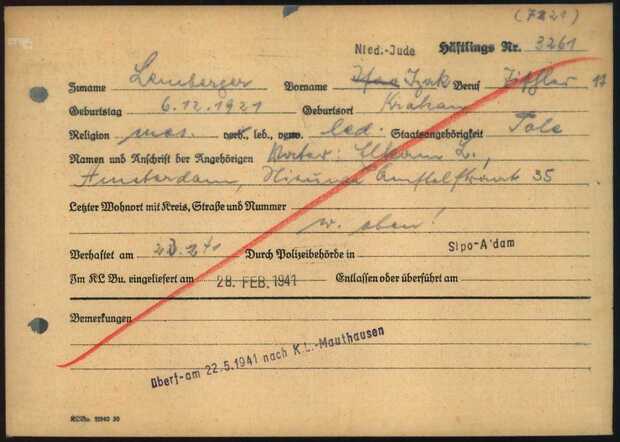 (7821)
Nied.-Jude Häftlings Nr. 3261
Zuname Lemberger Vorname Izak Beruf 17
Geburtstag 6.12.1921 Geburtsort Krakau
Religion mos. verh., led., verw. led. Staatsangehörigkeit Pole
Namen und Anschrift der Angehörigen Vater: L.,
Amsterdam, Nieuwe Amstelstraat 35
Letzter Wohnort mit Kreis, Straße und Nummer
w. oben!
Verhaftet am 2.41 Durch Polizeibehörde in Sipo-A'dam
Im KL Bu. eingeliefert am 28. FEB. 1941 Entlassen oder überführt am
Bemerkungen
Überf. am 22.5.1941 nach K.L.-Mauthausen